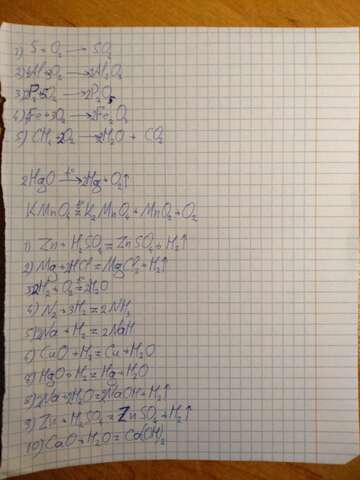 1) S + O₂ → SO₂
2) 4Al+3O₂ → 2Al₂O₃
3) 4P+5O₂ → 2P₂O₅
4) 4Fe+3O₂ → 2Fe₂O₃
5) CH₄+2O₂ → 2H₂O + CO₂
2HgO t°→ 2Hg+O₂↑
KMnO₄ t°= K₂MnO₄+MnO₂+O₂
1) Zn+H₂SO₄=ZnSO₄+H₂↑
2) Mg+2HCl=MgCl₂+H₂↑
3) 2H₂+O₂ t°= 2H₂O
4) N₂+3H₂=2NH₃
5) 2Na+H₂=2NaH
6) CuO+H₂=Cu+H₂O
8) HgO+H₂=Hg+H₂O
8) 2Na+2H₂O=2NaOH+H₂↑
9) Zn+H₂SO₄=ZnSO₄+H₂↑
10) CaO+H₂O=Ca(OH)₂